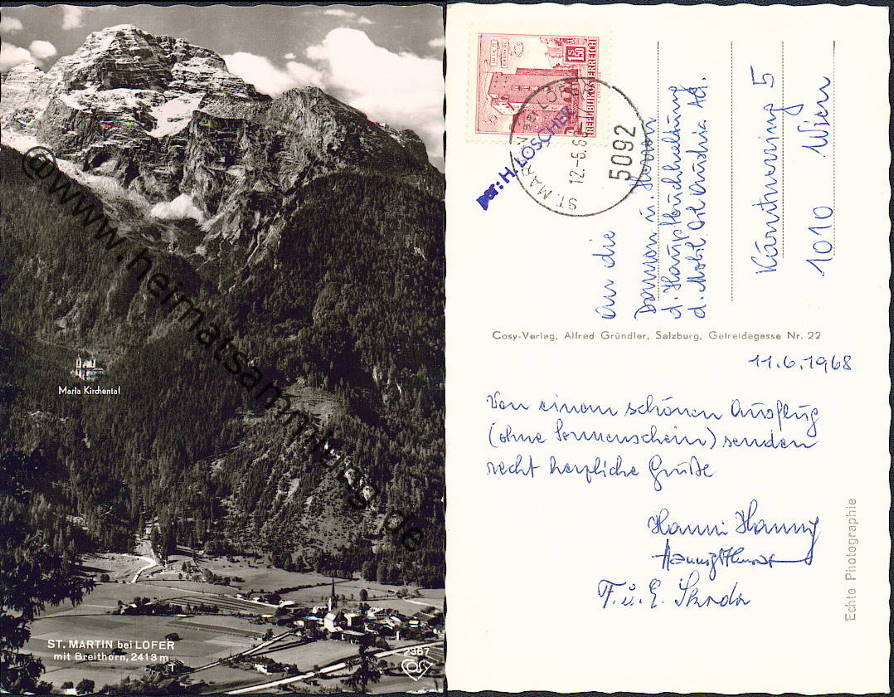 @www.heimatsammlung.de
Maria Kirchental
ST. MARTIN bei LOFER
mit Breithorn, 2413 m
2367
COSY
REPUBLIK ÖSTERREICH
1.50
S
ST. MARTIN BEI LOFER
12.-6.68
5092
H. LÖSCHER
An die
Damen u. Herren
d. Hauptbuchhaltung
d. Mobil Oil Austria AG.
Kärntnerring 5
1010 Wien
Cosy-Verlag, Alfred Gründler, Salzburg, Getreidegasse Nr. 22
11.6.1968
Von einem schönen Ausflug
(ohne Sonnenschein) senden
recht herzliche Grüße
Hanni Hannig
F. u. E. Skoda
Echte Photographie